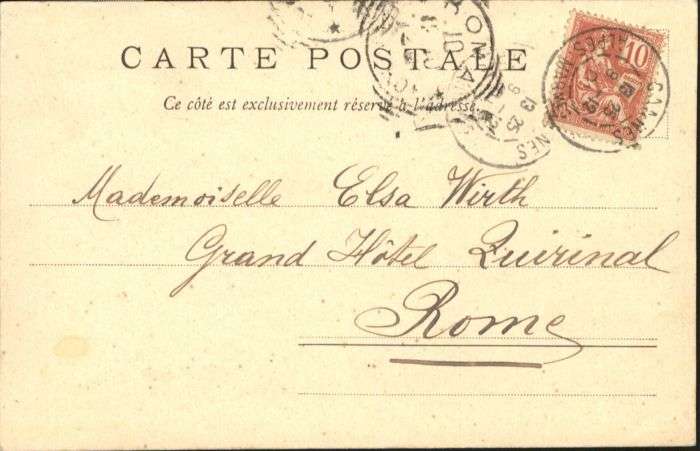 CARTE POSTALE
Ce côté est exclusivement réservé à l'adresse.
10
CANNES
Mademoiselle Elsa Wirth
Grand Hôtel Quirinal
Rome